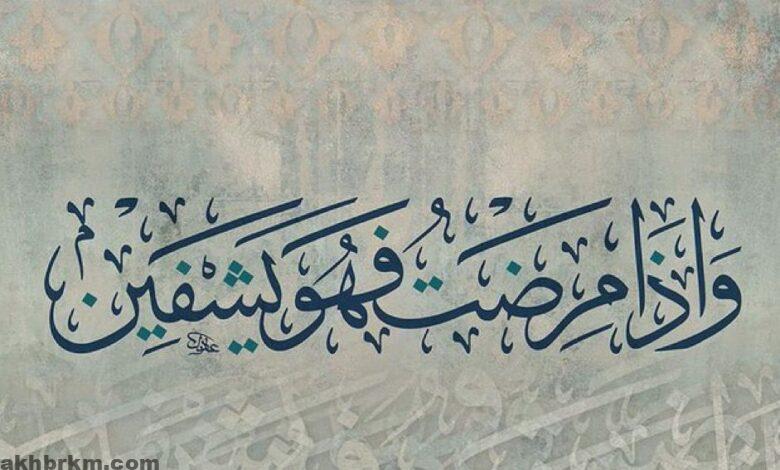 وَإِذَا مَرِضْتُ فَهُوَ يَشْفِينِ
akhbrkm.com